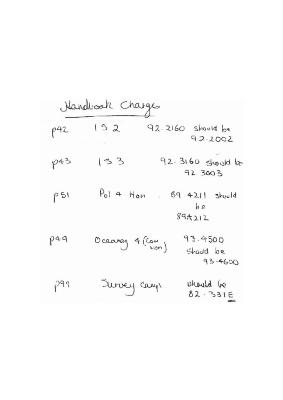 Handbook Charges
p42 1 S 2 92.2160 should be
92.2002
p43 1 S 3 92.3160 should be
92.3003
p51 Pol 4 Hon . 89.4211 should
be
89.4212
p49 Oceanog 4 93.4500
should be
93.4600
Survey camp should be
82.331E